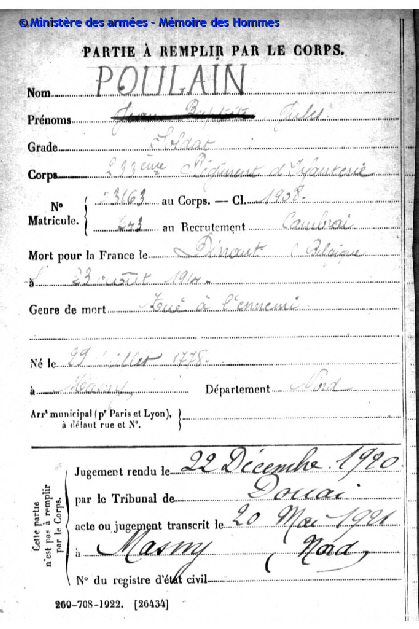 © Ministère des armées - Mémoire des Hommes
PARTIE À REMPLIR PAR LE CORPS.
Nom POULAIN
Prénoms Jules
Grade Soldat
Corps 233ème Régiment d'Infanterie
N° Matricule. 3163 au Corps. — Cl. 1908
273 au Recrutement Cambrai
Mort pour la France le Dinant Belgique
à 23 août 19
Genre de mort Tué à l'ennemi
Né le 29 Juillet
à Masny Département Nord
Arrt municipal (pr Paris et Lyon), à défaut rue et N°.
Cette partie n'est pas à remplir par le Corps.
Jugement rendu le 22 Décembre 1920
par le Tribunal de Douai
acte ou jugement transcrit le 20 Mai 1921
à Masny Nord
N° du registre d'état civil
260-708-1922. [26434]